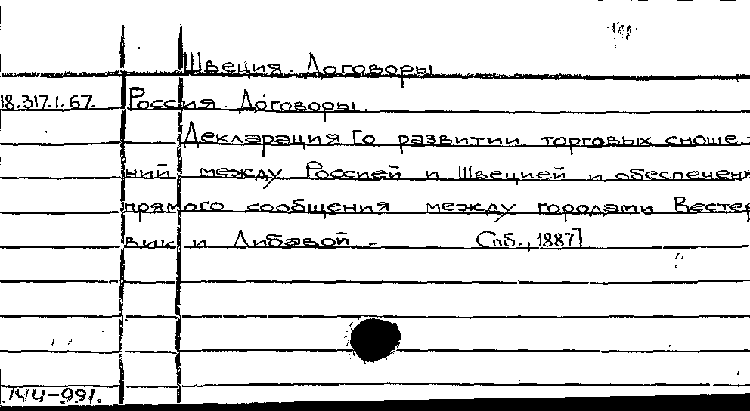 Швеция. Договоры
18.317.1.67. Россия. Договоры.
Декларация [о развитии торговых сноше-
ний между Россией и Швецией и обеспечени
прямого сообщения между городами Вестер
вик и Либавой. - Спб., 1887]
144-991.